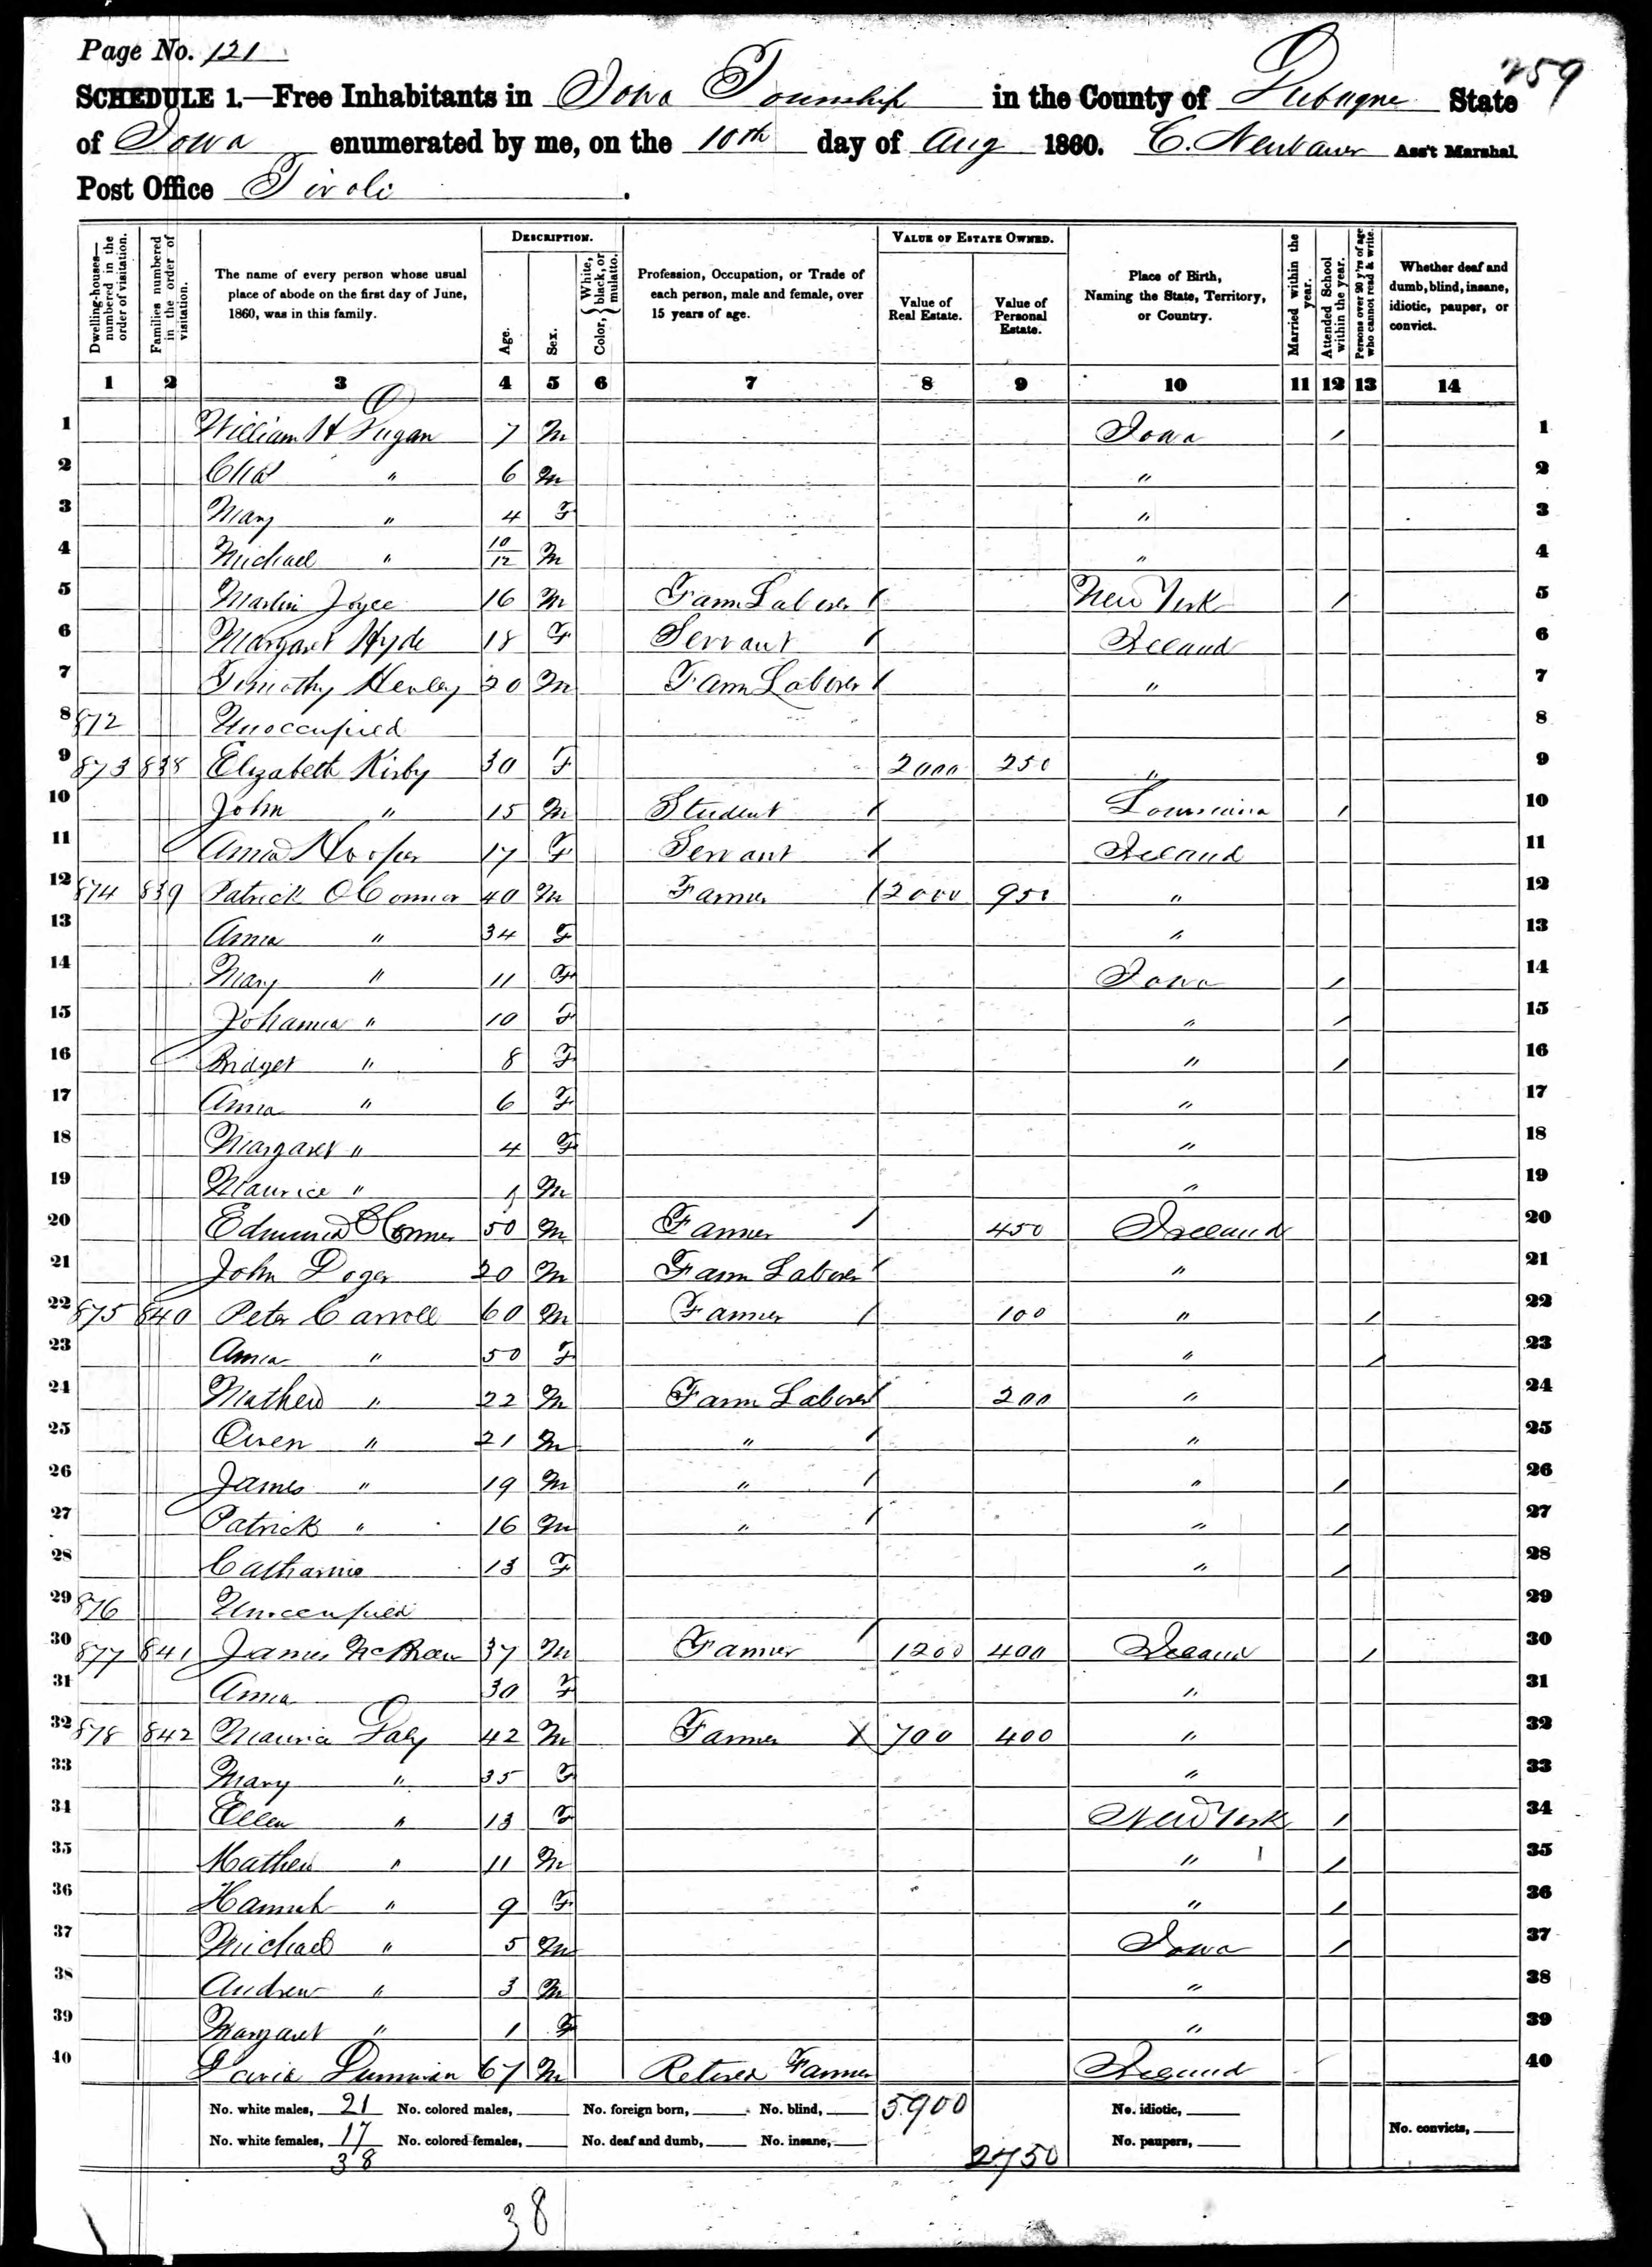 Page No. 121
259
SCHEDULE 1.—Free Inhabitants in Iowa Township in the County of Dubuque State
of Iowa enumerated by me, on the 10th day of Aug 1860. C. Neubauer Ass't Marshal.
Post Office Tivoli.
Dwelling-houses—numbered in the order of visitation.
Families numbered in the order of visitation.
The name of every person whose usual place of abode on the first day of June, 1860, was in this family.
DESCRIPTION.
Age.
Sex.
Color, { White, black, or mulatto.
Profession, Occupation, or Trade of each person, male and female, over 15 years of age.
VALUE OF ESTATE OWNED.
Value of Real Estate.
Value of Personal Estate.
Place of Birth, Naming the State, Territory, or Country.
Married within the year.
Attended School within the year.
Persons over 20 y'rs of age who cannot read & write.
Whether deaf and dumb, blind, insane, idiotic, pauper, or convict.
1 2 3 4 5 6 7 8 9 10 11 12 13 14
1 William H Dugan 7 M Iowa / 1
2 Chas " 6 M " 2
3 Mary " 4 F " 3
4 Michael " 10/12 M " 4
5 Martin Joyce 16 M Farm Laborer / New York / 5
6 Margaret Hyde 18 F Servant / Ireland 6
7 Timothy Henley 20 M Farm Laborer / " 7
8 872 Unoccupied 8
9 873 838 Elizabeth Kirby 30 F 2000 250 " 9
10 John " 15 M Student / Louisiana / 10
11 Anna Hooper 17 F Servant / Ireland 11
12 874 839 Patrick O Connor 40 M Farmer / 2000 950 " 12
13 Anna " 34 F " 13
14 Mary " 11 F Iowa / 14
15 Johanna " 10 F " / 15
16 Bridget " 8 F " / 16
17 Anna " 6 F " 17
18 Margaret " 4 F " 18
19 Maurice " 1 M " 19
20 Edmund O Connor 50 M Farmer / 450 Ireland 20
21 John 20 M Farm Laborer / " 21
22 875 840 Peter Carroll 60 M Farmer / 100 " / 22
23 Anna " 50 F " / 23
24 Mathew " 22 M Farm Laborer / 200 " 24
25 Owen " 21 M " / " 25
26 James " 19 M " / " / 26
27 Patrick " 16 M " / " / 27
28 Catharine 13 F " / 28
29 876 Unoccupied 29
30 877 841 James 37 M Farmer / 1200 400 Ireland / 30
31 Anna 30 F " 31
32 878 842 Maurice Daly 42 M Farmer X 700 400 " 32
33 Mary " 35 F " 33
34 Ellen " 13 F New York / 34
35 Mathew " 11 M " / 35
36 Hannah " 9 F " / 36
37 Michael " 5 M Iowa / 37
38 Andrew " 3 M " 38
39 Margaret " 1 F " 39
40 67 M Retired Farmer Ireland 40
No. white males, 21 No. colored males, No. foreign born, No. blind, 5900 No. idiotic,
No. white females, 17 No. colored females, No. deaf and dumb, No. insane, 2750 No. paupers, No. convicts,
38
38